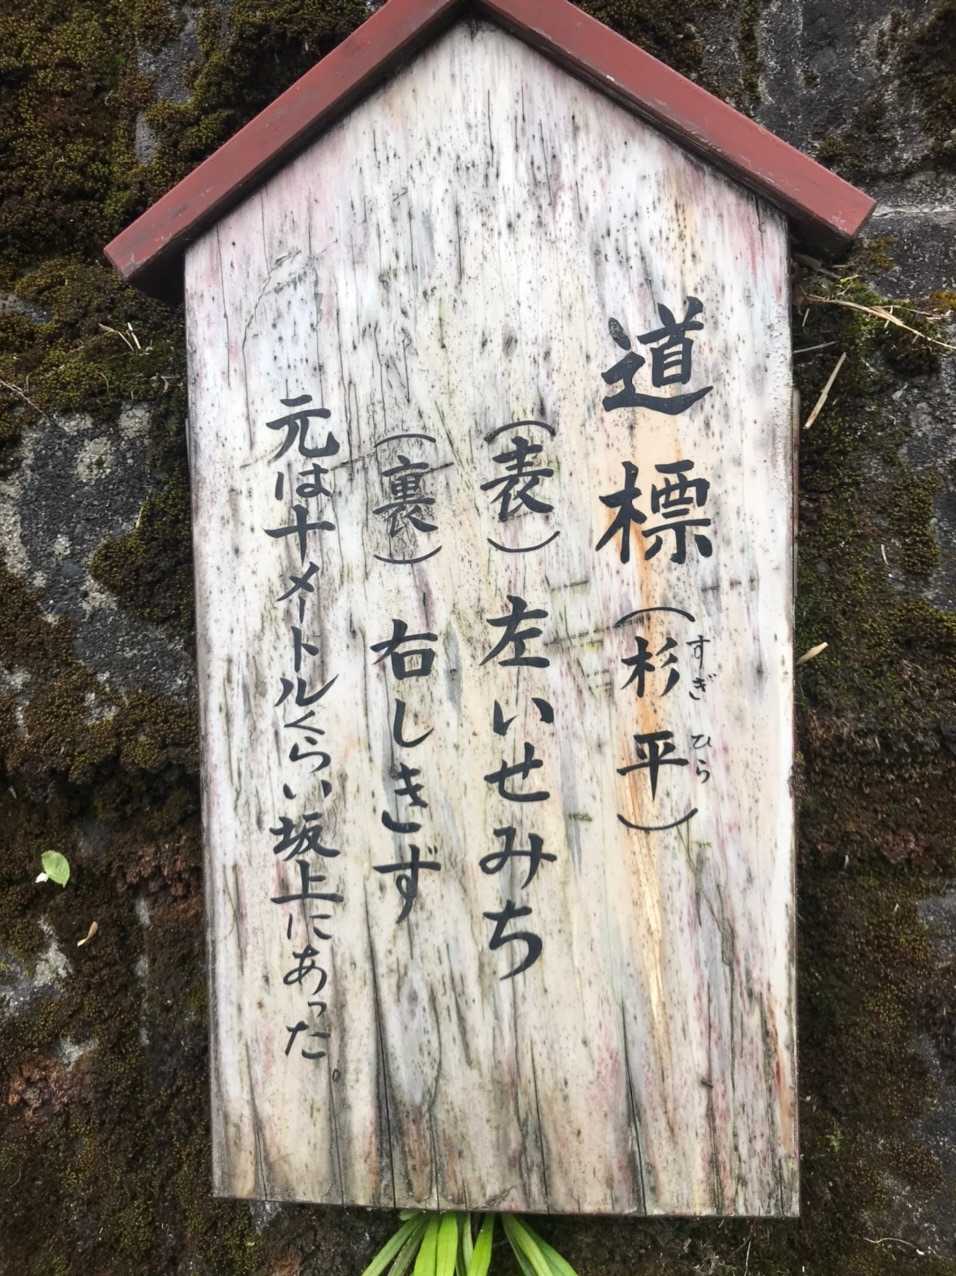 道標（杉平）
すぎ ひら
（表）左いせみち
（裏）右しきず
元は十メートルくらい坂上にあった。